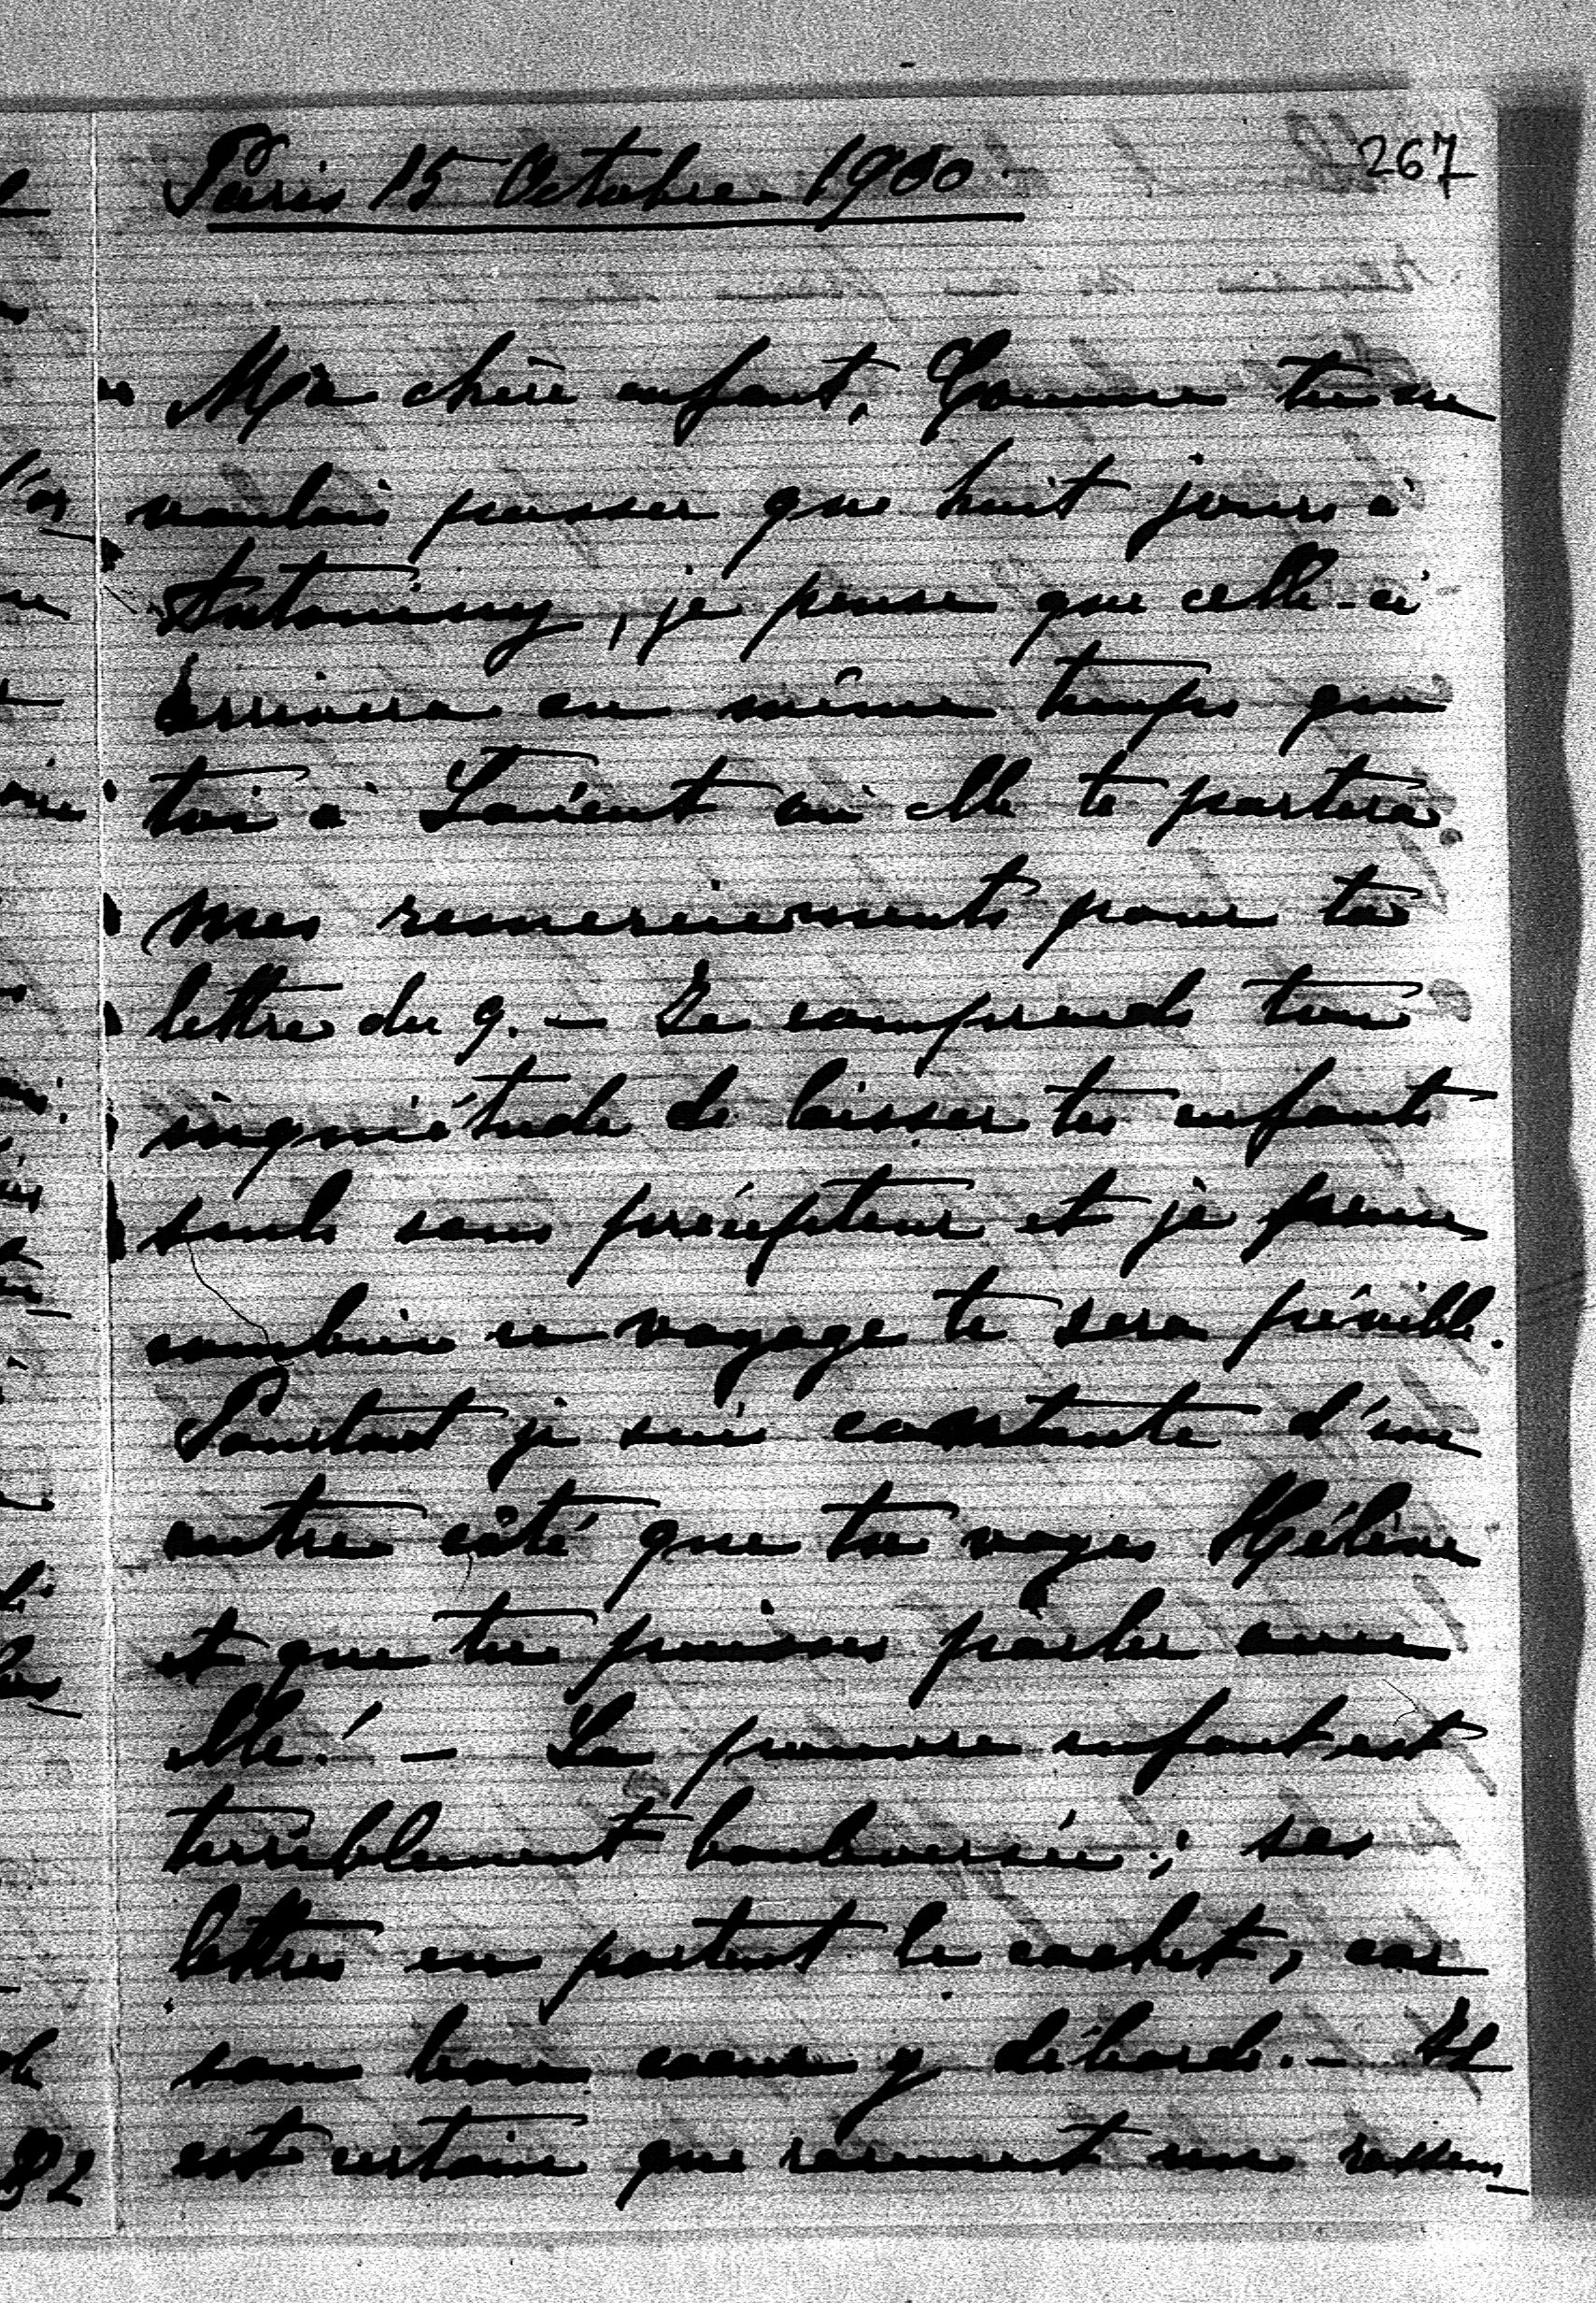 267
Paris 15 Octobre 1900
Ma chère enfant, Comme tu ne
voulais passer que huit jours à
Antoniny, je pense que celle-ci
arrivera en même temps que
toi à Lancut où elle te portera
mes remerciements pour ta
lettre du 9. — Je comprends ton
inquiétude de laisser tes enfants
seuls sans précepteur et je pense
combien ce voyage te sera pénible.
Pourtant je suis contente d'un
autre côté que tu voyes Hélène
et que tu puisses parler avec
elle! — La pauvre enfant est
terriblement bouleversée; ses
lettres en portent le cachet, car
son bon coeur y déborde. — Il
est certain que rarement une ressem_